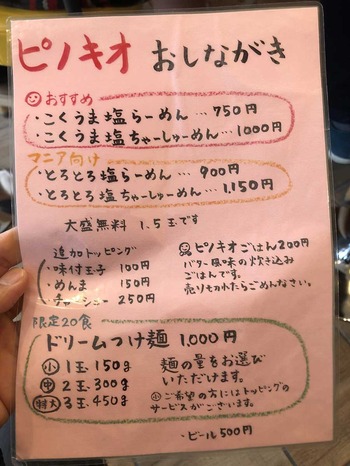 ピノキオ おしながき
おすすめ
・こくうま塩らーめん…750円
・こくうま塩ちゃーしゅーめん…1000円
マニア向け
・とろとろ塩らーめん… 900円
・とろとろ塩ちゃーしゅーめん…1,150円
大盛無料 1.5玉です
追加トッピング
・味付玉子 100円
・めんま 150円
・チャーシュー 250円
ピノキオごはん200円
バター風味の炊き込み
ごはんです。
売り切れたらごめんなさい。
限定20食
ドリームつけ麺 1,000円
小 1玉 150g
中 2玉 300g
特大 3玉 450g
麺の量をお選び
いただけます。
小ご希望の方にはトッピングの
サービスがございます。
・ビール500円